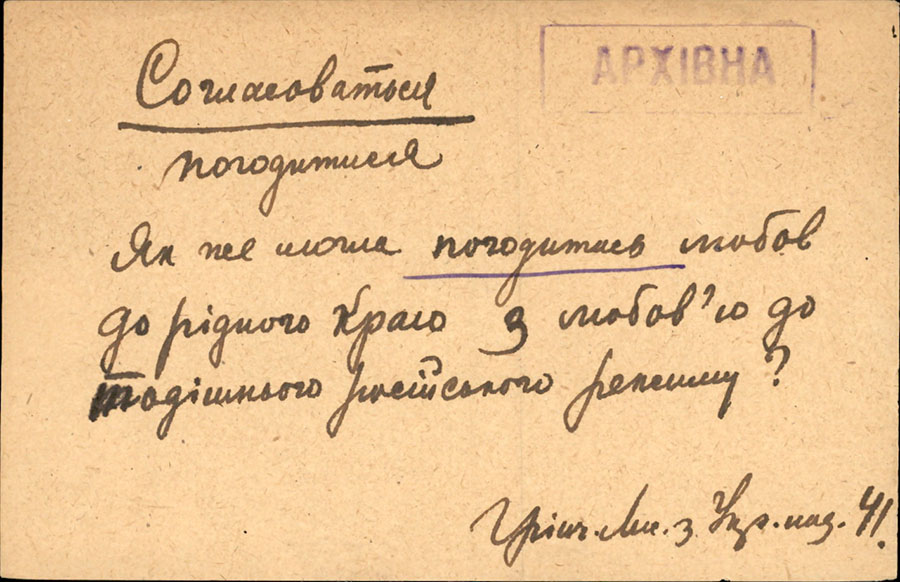 АРХІВНА
Согласоваться
погодитися
Як же могла погодитись любов
до рідного краю з любов'ю до
тодішнього російського режиму?
Грінч. Ми. з Укр. над. 41.